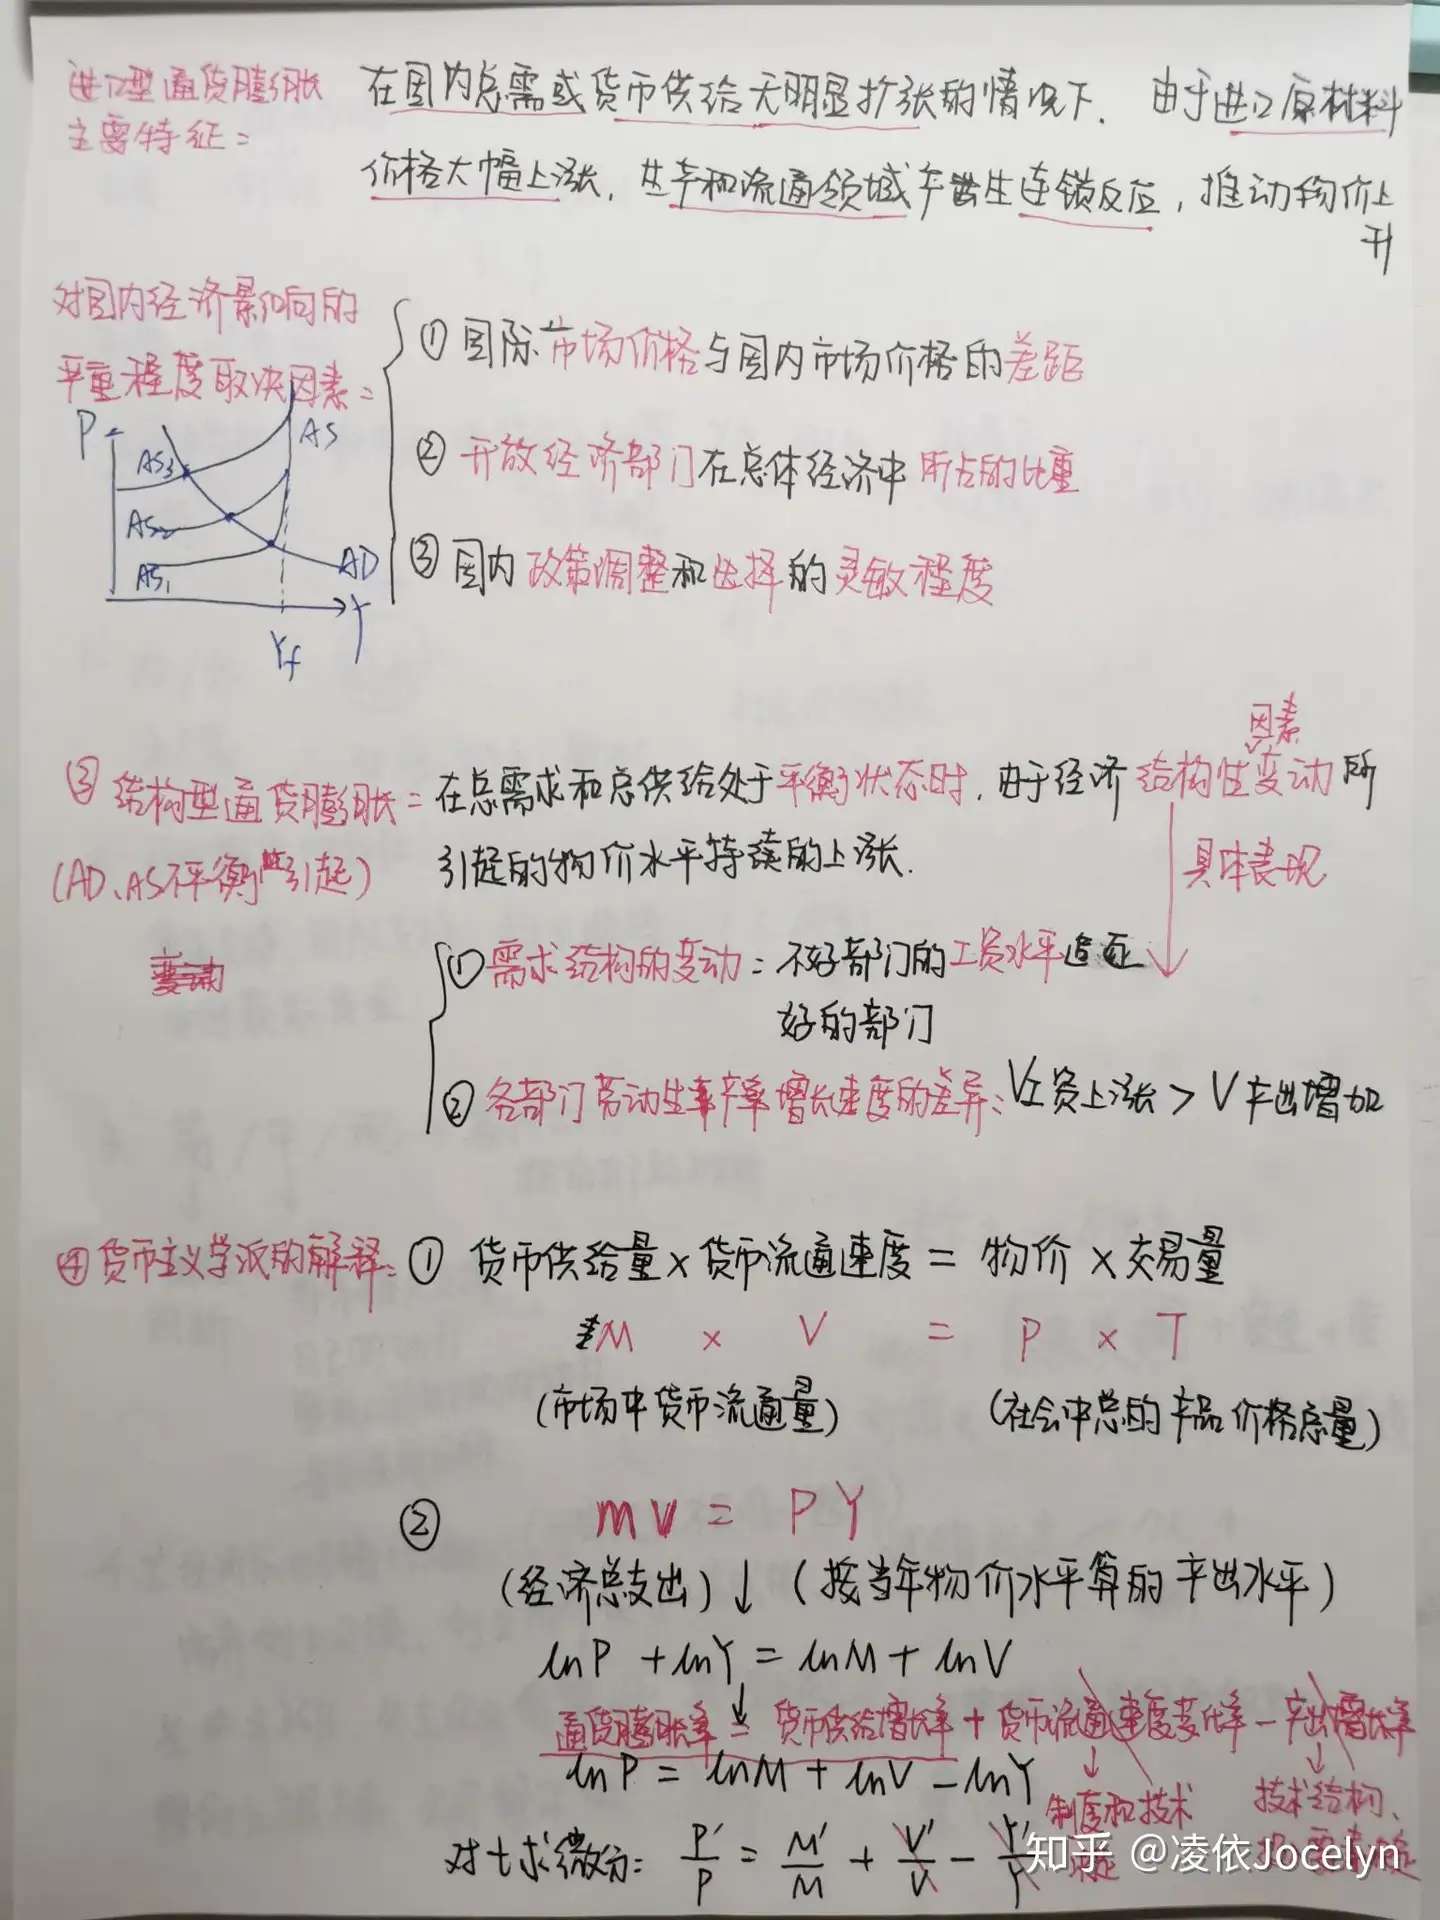 进口型通货膨胀
主要特征:
在国内总需或货币供给无明显扩张的情况下. 由于进口原材料
价格大幅上涨, 生产和流通领域产生连锁反应, 推动物价上
升
对国内经济影响的
严重程度取决因素:
① 国际市场价格与国内市场价格的差距
② 开放经济部门在总体经济中所占的比重
③ 国内政策调整和选择的灵敏程度
P
AS
AS3
AS2
AS1
AD
Y
Yf
③ 结构型通货膨胀: 在总需求和总供给处于平衡状态时, 由于经济结构性因素变动所
(AD、AS不平衡引起) 引起的物价水平持续的上涨.
具体表现
变动
① 需求结构的变动: 不好部门的工资水平追
好的部门
② 各部门劳动生产率增长速度的差异: V工资上涨 > V产出增加
④ 货币主义学派的解释: ① 货币供给量 × 货币流通速度 = 物价 × 交易量
M × V = P × T
(市场中货币流通量) (社会中总的产品价格总量)
② MV = PY
(经济总支出) ↓ (按当年物价水平算的产出水平)
lnP + lnY = lnM + lnV
↓
通货膨胀率 = 货币供给增长率 + 货币流通速度变化率 - 产出增长率
lnP = lnM + lnV - lnY
↓ ↓
制度和技术 技术结构、
对t求微分: P'/P = M'/M + V'/V - Y'/Y
知乎 @凌依Jocelyn